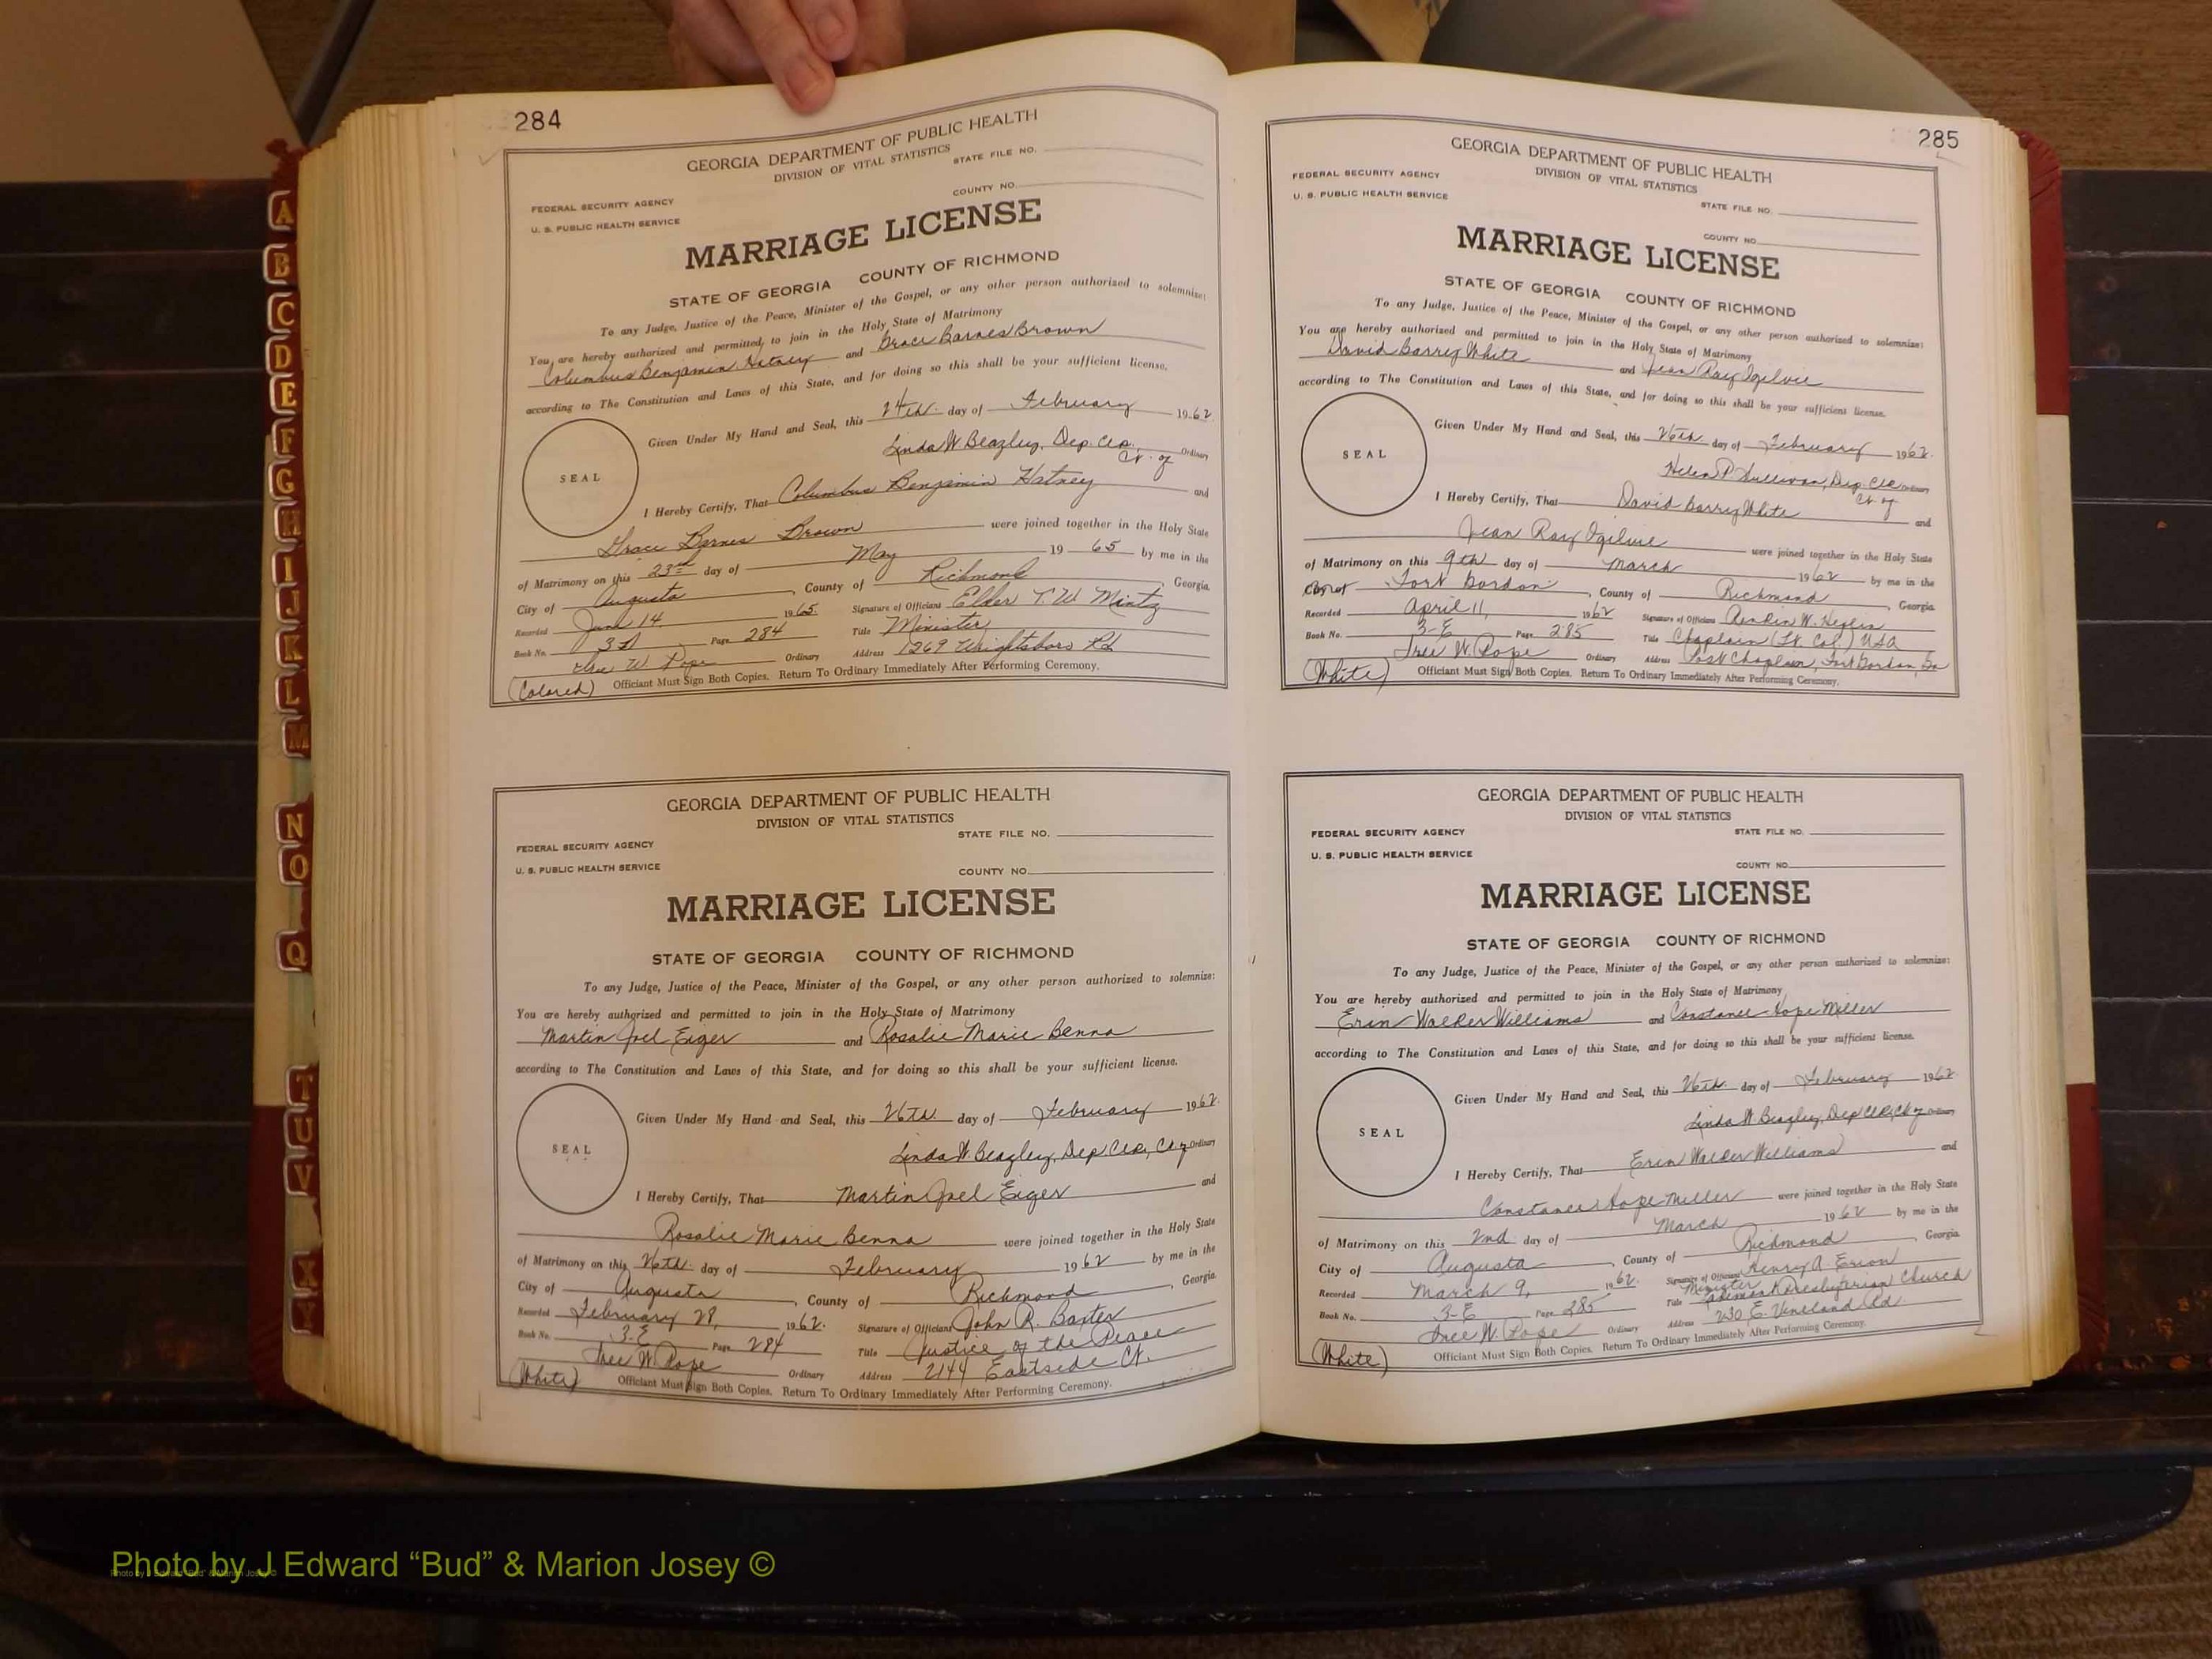 284
GEORGIA DEPARTMENT OF PUBLIC HEALTH
DIVISION OF VITAL STATISTICS
STATE FILE NO.
FEDERAL SECURITY AGENCY
COUNTY NO.
U. S. PUBLIC HEALTH SERVICE
MARRIAGE LICENSE
STATE OF GEORGIA COUNTY OF RICHMOND
To any Judge, Justice of the Peace, Minister of the Gospel, or any other person authorized to solemnize:
You are hereby authorized and permitted to join in the Holy State of Matrimony
Columbus Benjamin and Grace Barnes Brown
according to The Constitution and Laws of this State, and for doing so this shall be your sufficient license.
Given Under My Hand and Seal, this 24th day of February 1962
SEAL
Linda W. Beazley, Dep. Clk. Ct. of Ordinary
I Hereby Certify, That Columbus Benjamin Hatney and
Grace Barnes Brown were joined together in the Holy State
of Matrimony on this 23rd day of May 19 65 by me in the
City of Augusta, County of Richmond, Georgia.
Recorded June 14, 1965. Signature of Officiant Elder T. W. Mintz
Book No. Page 284 Title Minister
W. Pope Ordinary Address 1269 Wrightsboro Rd
(Colored) Officiant Must Sign Both Copies. Return To Ordinary Immediately After Performing Ceremony.
GEORGIA DEPARTMENT OF PUBLIC HEALTH
DIVISION OF VITAL STATISTICS
STATE FILE NO.
FEDERAL SECURITY AGENCY
U. S. PUBLIC HEALTH SERVICE
COUNTY NO.
MARRIAGE LICENSE
STATE OF GEORGIA COUNTY OF RICHMOND
To any Judge, Justice of the Peace, Minister of the Gospel, or any other person authorized to solemnize:
You are hereby authorized and permitted to join in the Holy State of Matrimony
Martin Joel Eiger and Rosalie Marie Benna
according to The Constitution and Laws of this State, and for doing so this shall be your sufficient license.
Given Under My Hand and Seal, this 26th day of February 1962.
SEAL
Linda W. Beazley, Dep. Clk., Ct. of Ordinary
I Hereby Certify, That Martin Joel Eiger and
Rosalie Marie Benna were joined together in the Holy State
of Matrimony on this 26th day of February 1962 by me in the
City of Augusta, County of Richmond, Georgia.
Recorded February 28, 1962. Signature of Officiant John R. Baxter
Book No. 3-E Page 284 Title Justice of the Peace
W. Pope Ordinary Address 2144 Eastside Ct.
(White) Officiant Must Sign Both Copies. Return To Ordinary Immediately After Performing Ceremony.
285
GEORGIA DEPARTMENT OF PUBLIC HEALTH
DIVISION OF VITAL STATISTICS
FEDERAL SECURITY AGENCY
U. S. PUBLIC HEALTH SERVICE
STATE FILE NO.
COUNTY NO.
MARRIAGE LICENSE
STATE OF GEORGIA COUNTY OF RICHMOND
To any Judge, Justice of the Peace, Minister of the Gospel, or any other person authorized to solemnize:
You are hereby authorized and permitted to join in the Holy State of Matrimony
David Barry White and Jean Ray Ogilvie
according to The Constitution and Laws of this State, and for doing so this shall be your sufficient license.
Given Under My Hand and Seal, this 26th day of February 1962.
SEAL
Helen P. Sullivan, Dep. Clk. Ct. of Ordinary
I Hereby Certify, That David Barry White and
Jean Ray Ogilvie were joined together in the Holy State
of Matrimony on this 9th day of March 1962 by me in the
Fort Gordon, County of Richmond, Georgia.
Recorded April 11, 1962 Signature of Officiant W.
Book No. 3-E Page 285 Title Chaplain (Lt. Col.) USA
W. Pope Ordinary Address Post Chaplain, Fort Gordon, Ga
(White) Officiant Must Sign Both Copies. Return To Ordinary Immediately After Performing Ceremony.
GEORGIA DEPARTMENT OF PUBLIC HEALTH
DIVISION OF VITAL STATISTICS
FEDERAL SECURITY AGENCY
STATE FILE NO.
U. S. PUBLIC HEALTH SERVICE
COUNTY NO.
MARRIAGE LICENSE
STATE OF GEORGIA COUNTY OF RICHMOND
To any Judge, Justice of the Peace, Minister of the Gospel, or any other person authorized to solemnize:
You are hereby authorized and permitted to join in the Holy State of Matrimony
Erin Walker Williams and Constance Hope Miller
according to The Constitution and Laws of this State, and for doing so this shall be your sufficient license.
Given Under My Hand and Seal, this 26th day of February 1962.
SEAL
Linda W. Beazley, Dep. Clk, Ct of Ordinary
I Hereby Certify, That Erin Walker Williams and
Constance Hope Miller were joined together in the Holy State
of Matrimony on this 2nd day of March 1962 by me in the
City of Augusta, County of Richmond, Georgia.
Recorded March 9, 1962. Signature of Officiant Henry A.
Book No. 3-E Page 285 Title Minister Presbyterian Church
W. Pope Ordinary Address 230 E. Vineland Rd.
(White) Officiant Must Sign Both Copies. Return To Ordinary Immediately After Performing Ceremony.
A
B
C
D
E
F
G
H
I
J
K
L
M
N
O
Q
T
U
V
X
Y
Photo by J Edward “Bud” & Marion Josey ©
Photo by J Edward “Bud” & Marion Josey ©